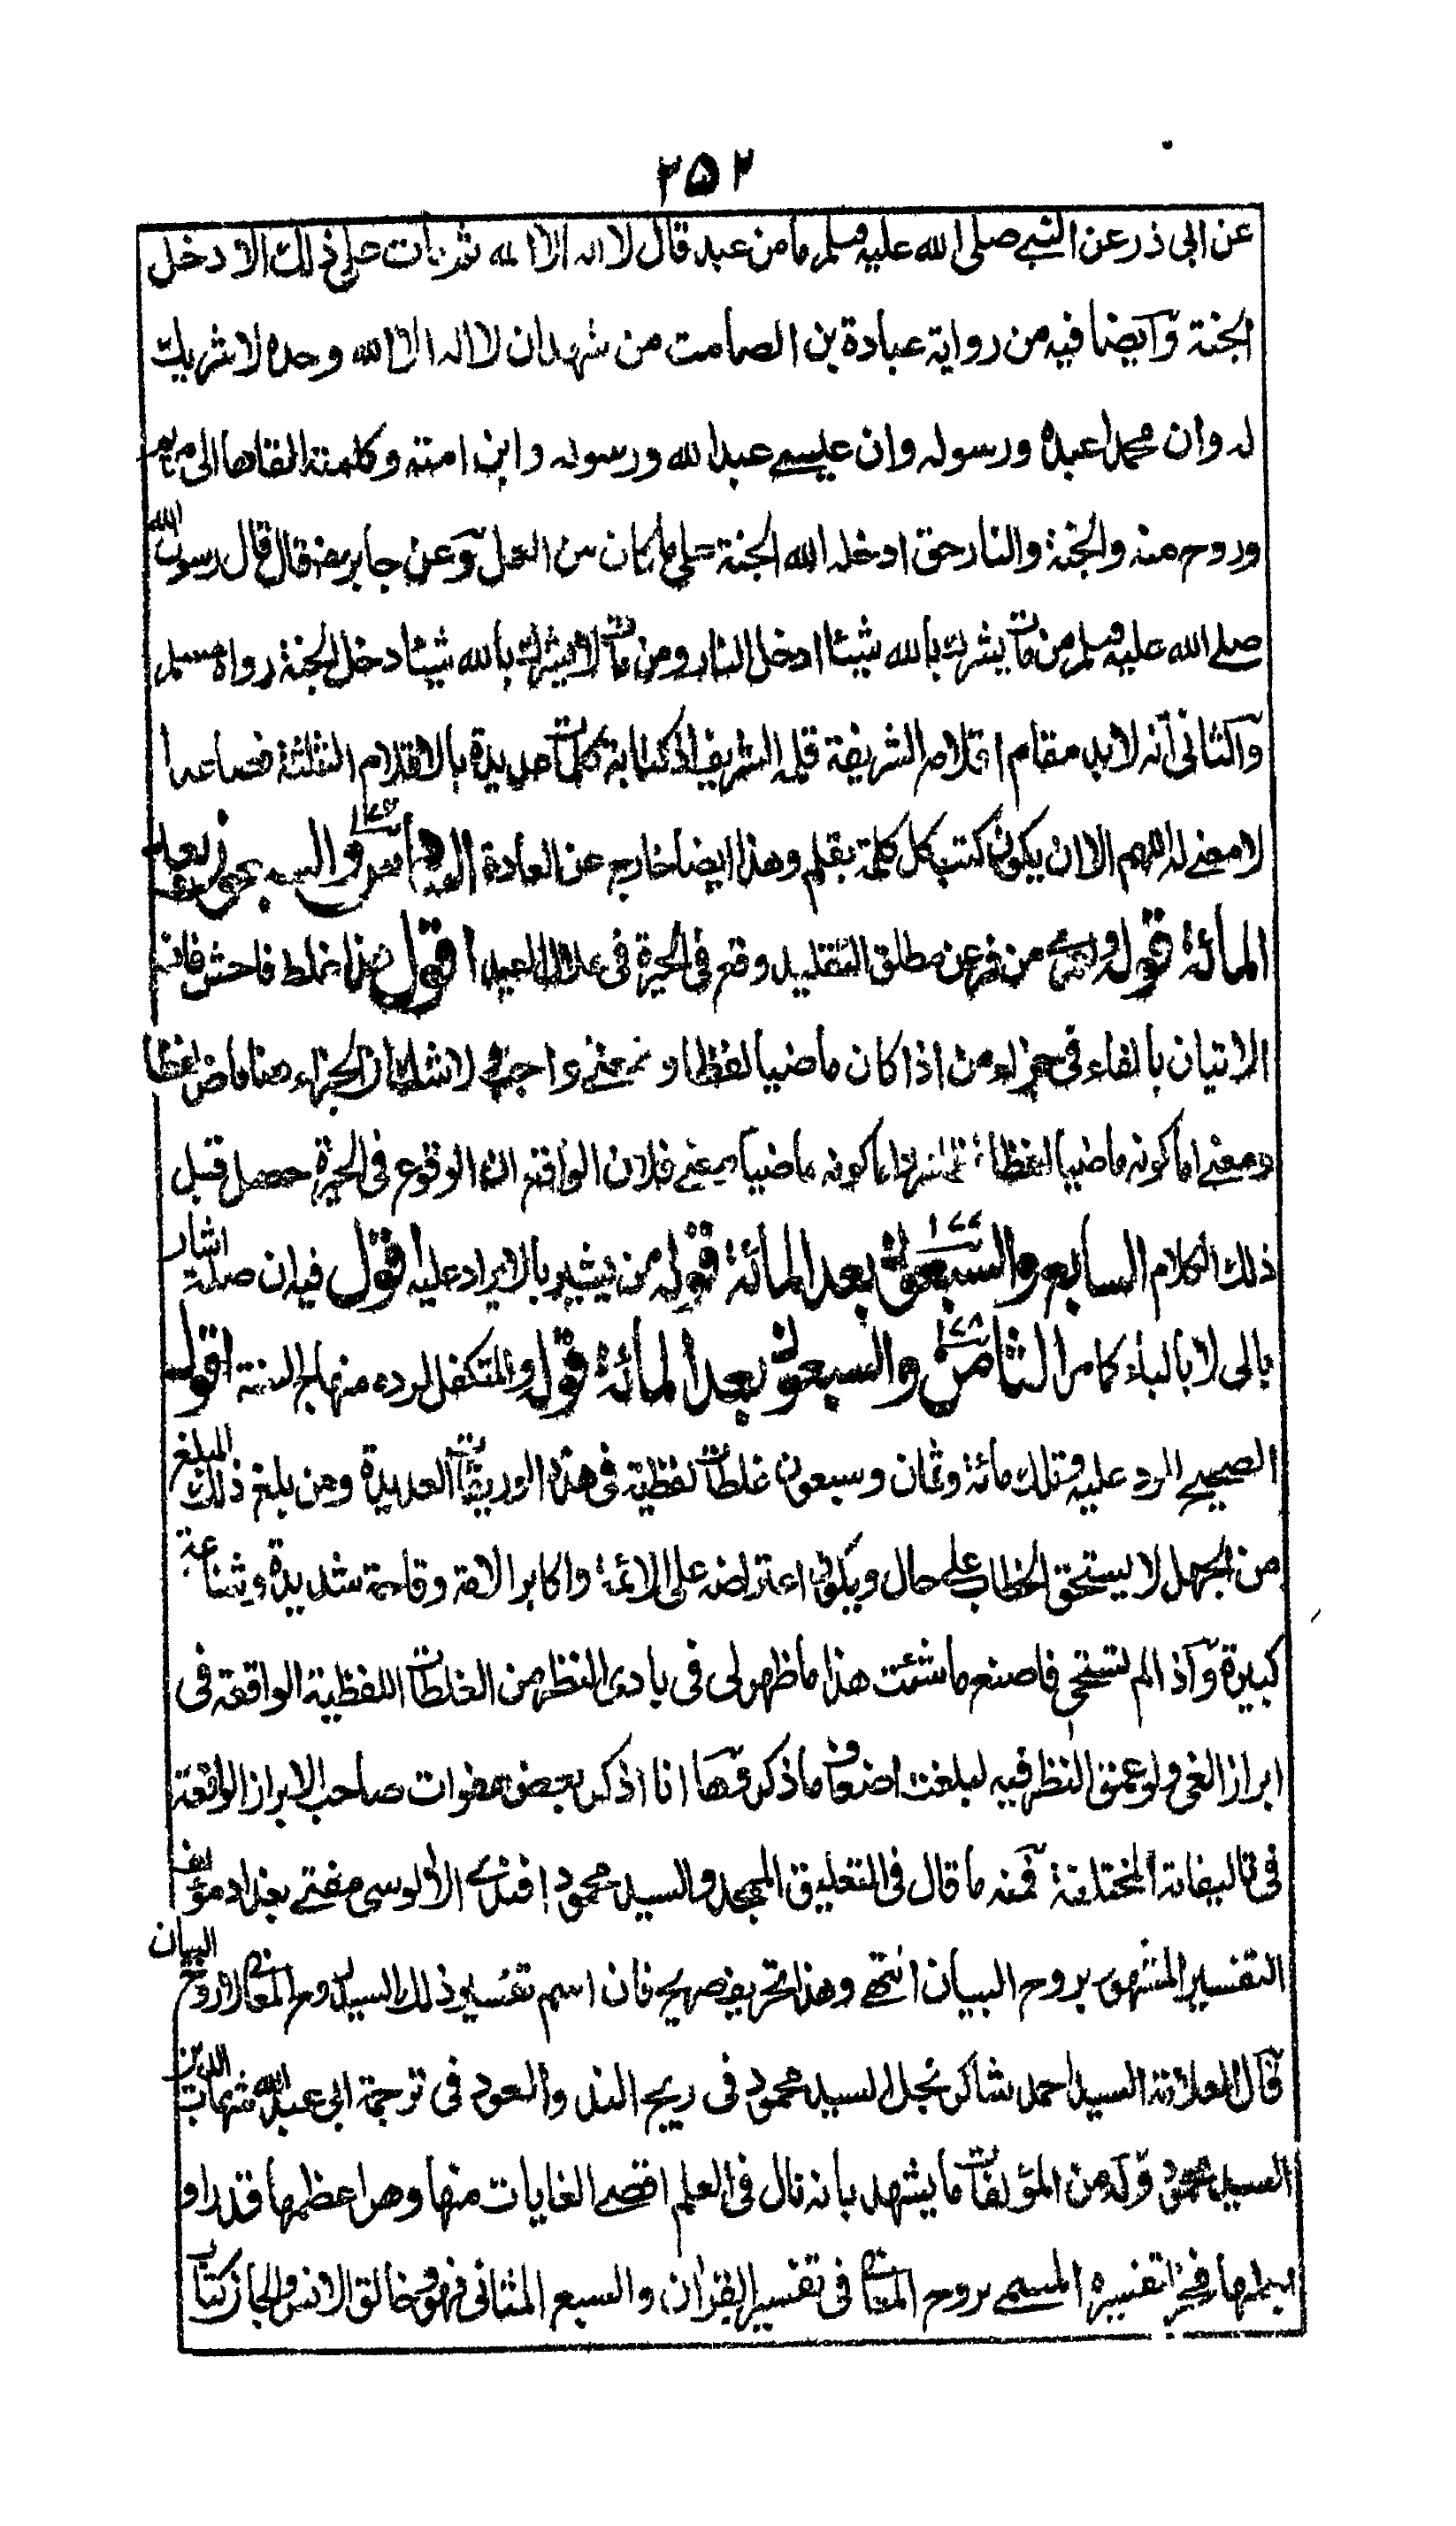 ۲۵۲
عن ابی ذر عن النبے صلی الله علیه وسلم ما من عبد قال لا اله الا الله ثم مات علی ذلك الا دخل
الجنة وآیضا فیه من روایة عبادة بن الصامت من شهد ان لا اله الا الله وحده لا شریك
له وان محمدا عبده ورسوله وان عیسے عبد الله ورسوله وابن امته وکلمته القاها الی مریم
وروح منه والجنة والنار حق ادخله الله الجنة علی ما کان من العمل وعن جابر رض قال قال رسول الله
صلے الله علیه وسلم من مات یشرك بالله شیئا ادخل النار ومن مات لا یشرك بالله شیئا دخل الجنة رواه مسلم
وآلثانی انه لا بد مقام اقلامه الشریفة قلمه الشریف اذ کتابة کلمات عدیدة بالاقلام الثلثة فصاعدا
لا معنے له اللهم الا ان یکون کتب کل کلمة بقلم وهذا ایضا خارج عن العادة السادس والسبعون بعد
المائة قوله ومن فر عن مطلق التقلید وقع فی الحیرة فی الضلال البعید اقول هذا غلط فاحش فانه
الاتیان بالفاء فی جزاء من اذا کان ماضیا لفظا ومعنے واجب لا شك ان الجزاء هنا ماض لفظا
ومعنے اما کونه ماضیا لفظا فظاهر واما کونه ماضیا معنے فلان الواقع ان الوقوع فی الحیرة حصل قبل
ذلك الکلام السابع والسبعون ۱۷۷ بعد المائة قوله من یشیر بالایراد علیه اقول فیه ان صلة اشار
بالی لا بالباء کما مر الثامن ۱۷۸ والسبعون بعد المائة قوله والمتکفل لرده منهاج السنة اقول
الصحیح الرد علیه وتلك مائة وثمان وسبعون غلطات لفظیة فی هذه الوریقات العدیدة ومن بلغ ذلك المبلغ
من الجهل لا یستحق الخطاب علے حال ویکون اعتراضه علی الائمة واکابر الامة وقاحة شدیدة وشناعة
کبیرة وآذا لم تستحی فاصنع ما شئت هذا ما ظهر لی فی بادی النظر من الغلطات اللفظیة الواقعة فی
ابراز الغی ولو عمق النظر فیه لبلغت اضعاف ما ذکر وها انا اذکر بعض هفوات صاحب الابراز الواقعة
فی تالیفاته المختلفة فمنه ما قال فی التعلیق الممجد والسید محمود افندے الالوسی مفتے بغداد مؤلف
التفسیر المشهور بروح البیان انتهے وهذا تحریف صریح فان اسم تفسیر ذلك السید روح المعانی لا روح البیان
قال العلامة السید احمد شاکر نجل السید محمود فی ریح الند والعود فی ترجمة ابی عبد الله شهاب الدین
السید محمود وله من المؤلفات ما یشهد بانه نال فی العلم اقصے الغایات منها وهو اعظمها قدرا و
اجلها فخرا تفسیره المسمے بروح المعانی فی تفسیر القران والسبع المثانی فهو وخالق الانس والجان کتاب